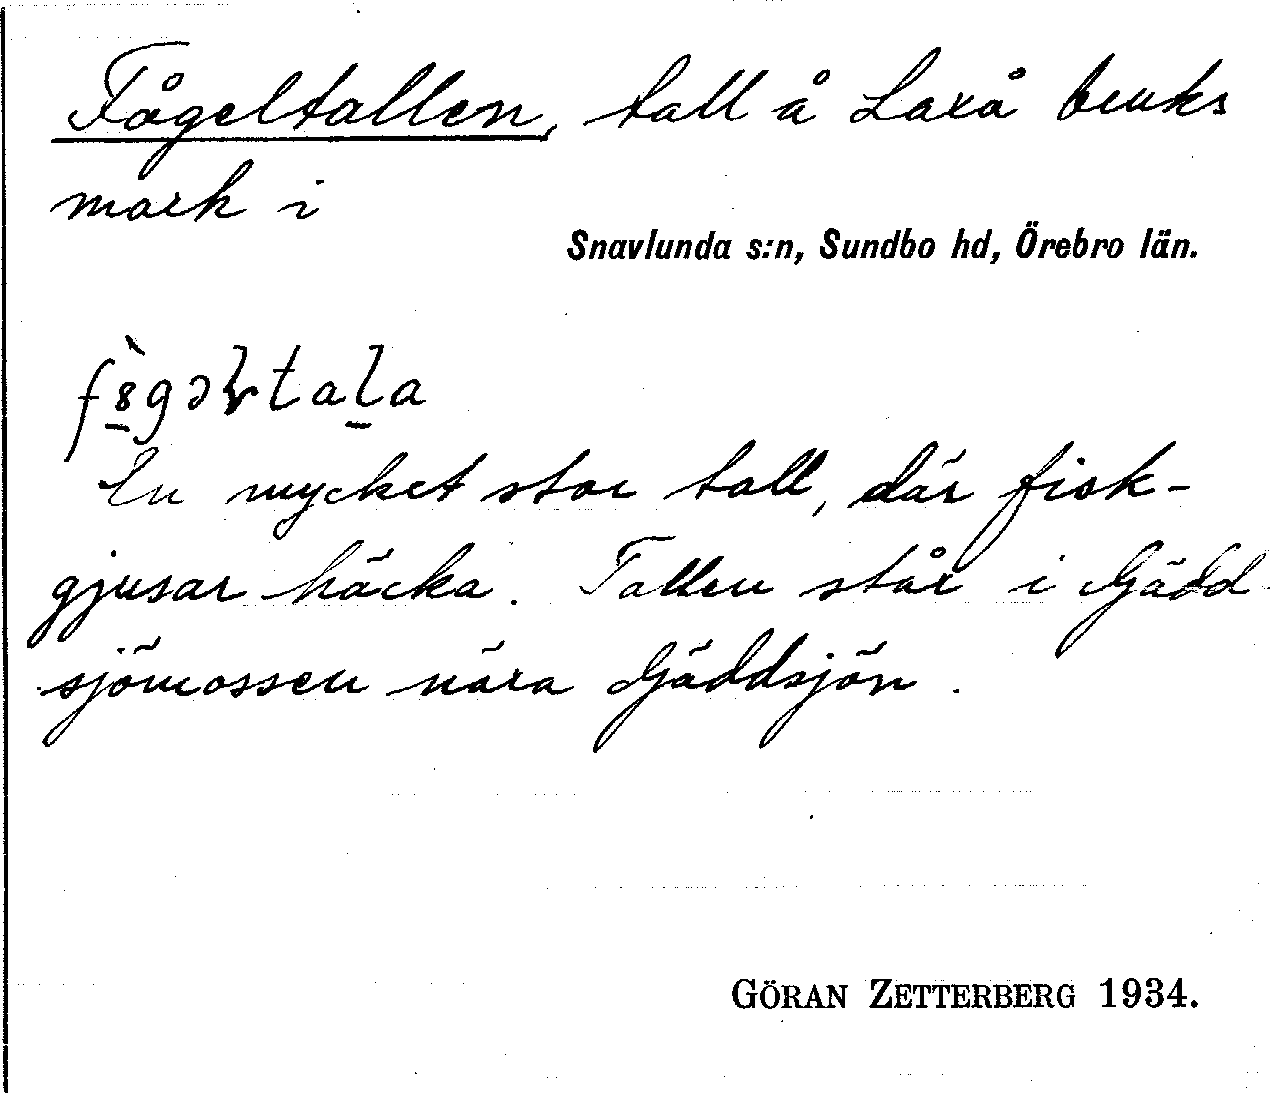 Fågeltallen, tall å Laxå bruks
mark i
Snavlunda s:n, Sundbo hd, Örebro län.
En mycket stor tall, där fisk-
gjusar häcka. Tallen står i Gädd
sjömossen nära Gäddsjön.
GÖRAN ZETTERBERG 1934.